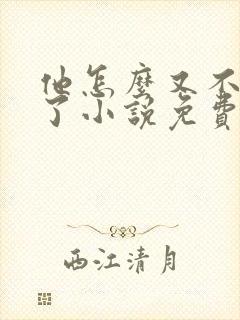 他怎麼又不
了小說免費
西江清月